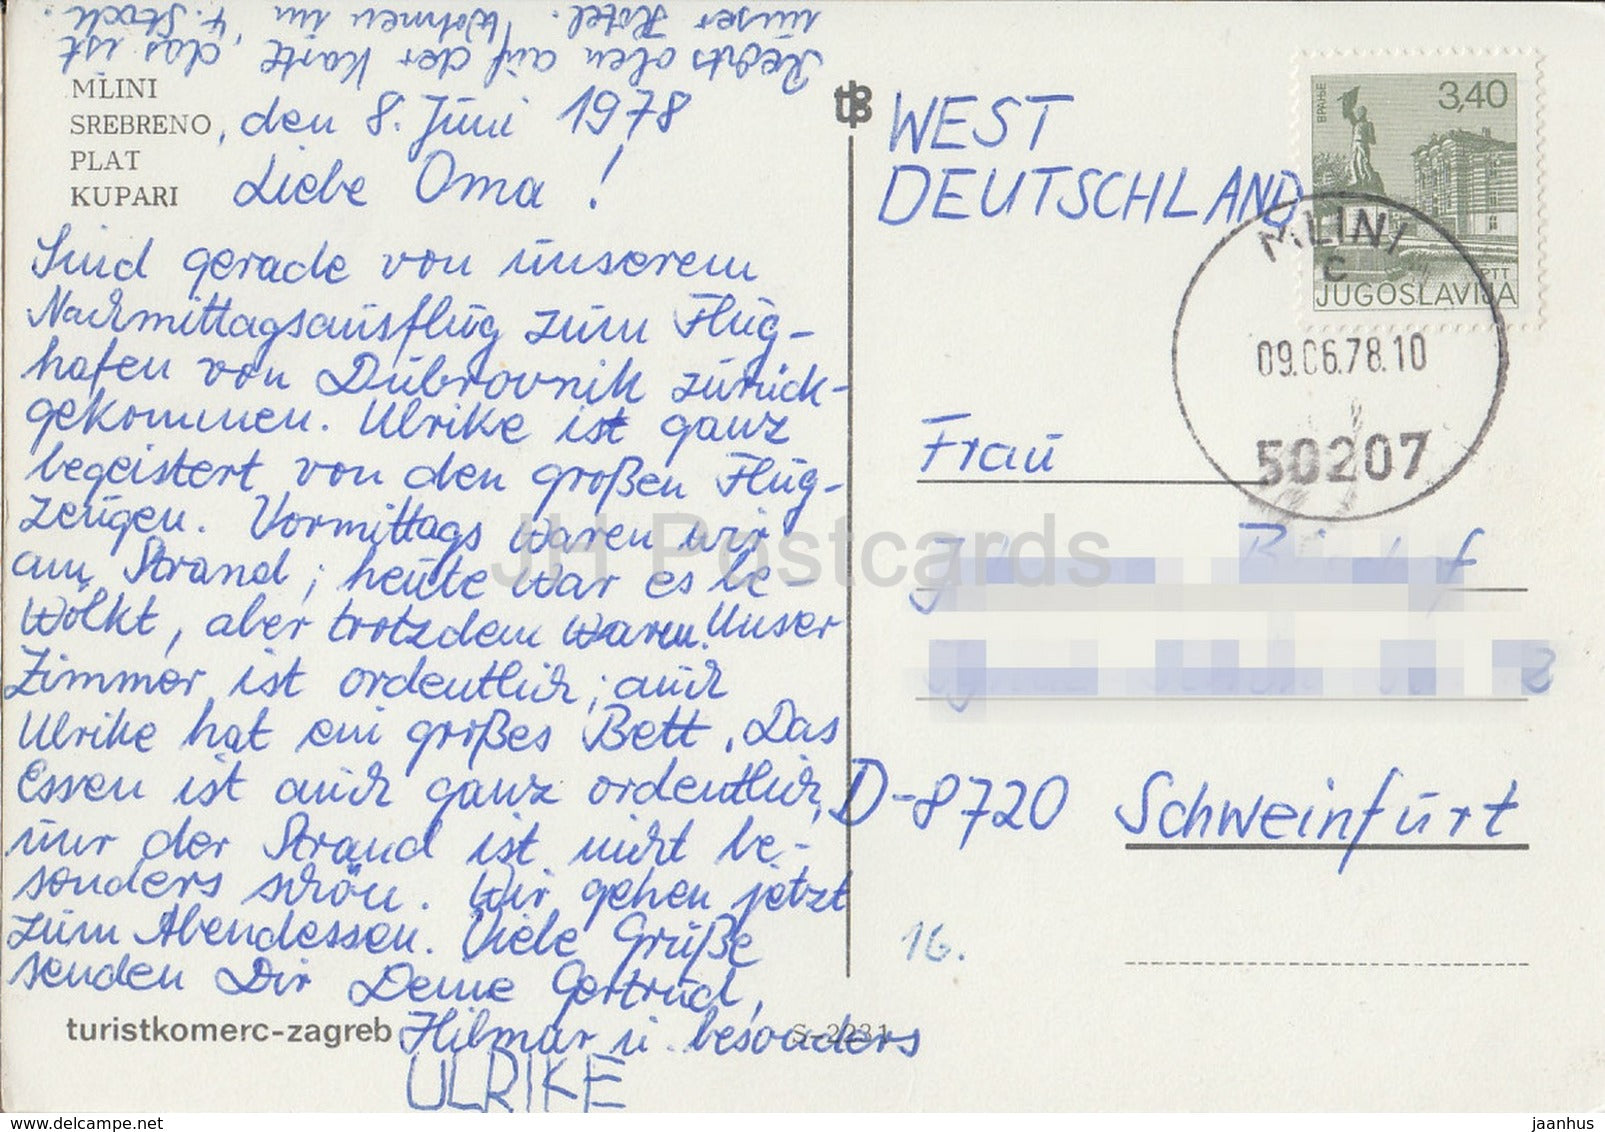 Rechts oben auf der Karte, das ist
unser Hotel. Wohnen im 4. Stock.
MLINI
SREBRENO, den 8. Juni 1978
PLAT
KUPARI
Liebe Oma!
Sind gerade von unserem
Nachmittagsausflug zum Flug-
hafen von Dubrovnik zurück-
gekommen. Ulrike ist ganz
begeistert von den großen Flug-
zeugen. Vormittags waren wir
am Strand; heute war es be-
wölkt, aber trotzdem warm. Unser
Zimmer ist ordentlich; auch
Ulrike hat ein großes Bett. Das
Essen ist auch ganz ordentlich,
nur der Strand ist nicht be-
sonders schön. Wir gehen jetzt
zum Abendessen. Viele Grüße
senden Dir Deine Gertrud,
Hilmar u. besonders
ULRIKE
turistkomerc-zagreb
S-2231
tB
WEST
DEUTSCHLAND
ВРАЊЕ
3,40
PTT
JUGOSLAVIJA
MLINI
C
09.06.78.10
50207
Frau
D-8720 Schweinfurt
16.
JH Postcards
www.delcampe.net
jaanhus